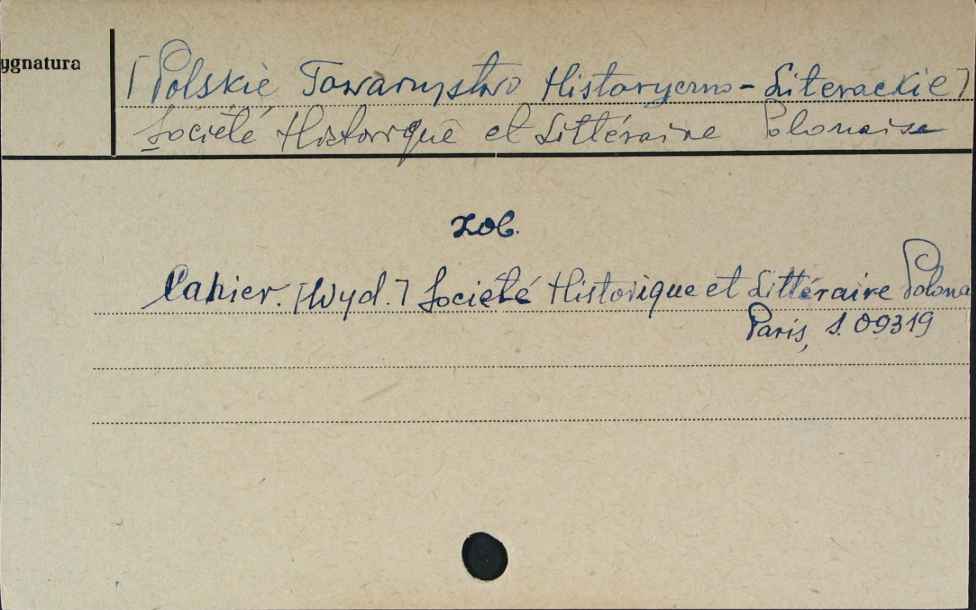 ygnatura
[Polskie Towarzystwo Historyczno-Literackie]
Société Historique et Littéraire Polonaise
zob.
Cahier. [Wyd.] Société Historique et Littéraire Polona
Paris, s. 09319